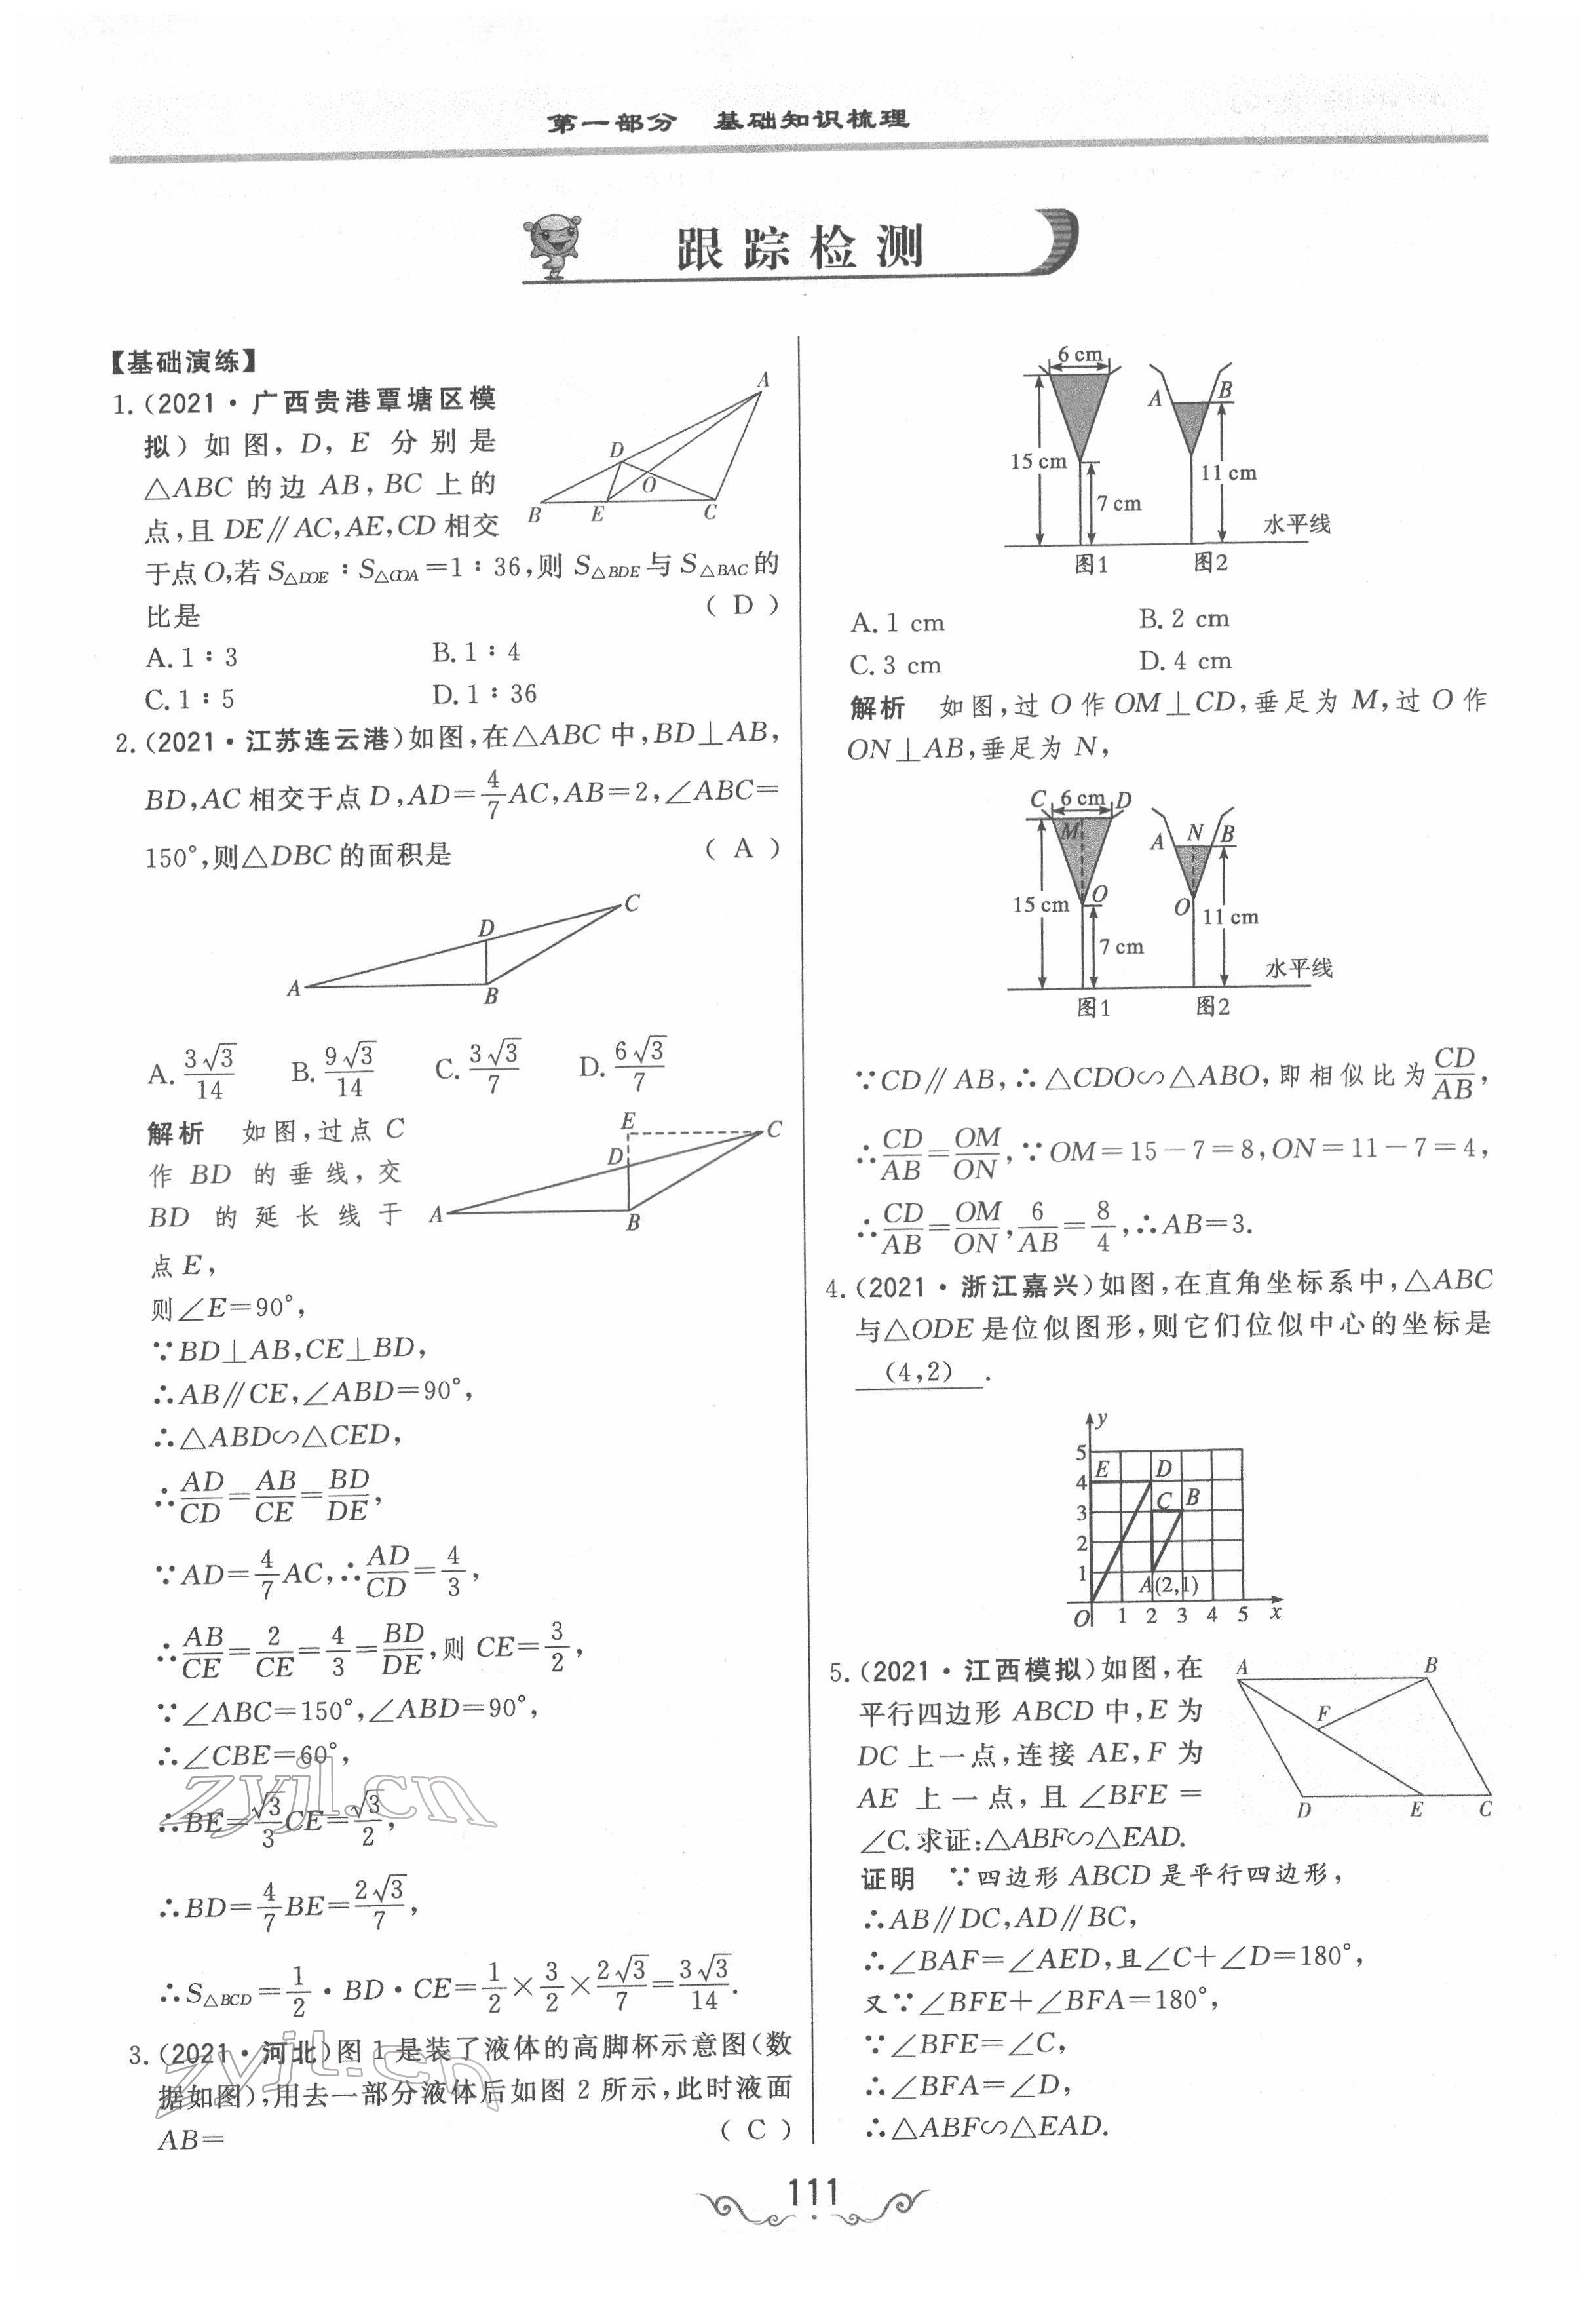 第一部分 基础知识梳理
跟踪检测
【基础演练】
1.(2021·广西贵港覃塘区模
拟)如图,D,E 分别是
△ABC 的边 AB,BC 上的
点,且 DE∥AC,AE,CD 相交
于点 O,若 S△DOE∶S△COA=1∶36,则 S△BDE与 S△BAC的
比是 ( D )
A.1∶3 B.1∶4
C.1∶5 D.1∶36
A
D
O
B E C
2.(2021·江苏连云港)如图,在△ABC 中,BD⊥AB,
BD,AC 相交于点 D,AD=4/7AC,AB=2,∠ABC=
150°,则△DBC 的面积是 ( A )
C
D
A B
A.3√3/14 B.9√3/14 C.3√3/7 D.6√3/7
解析 如图,过点 C
作 BD 的垂线,交
BD 的延长线于
点 E,
E C
D
A B
则∠E=90°,
∵BD⊥AB,CE⊥BD,
∴AB∥CE,∠ABD=90°,
∴△ABD∽△CED,
∴AD/CD=AB/CE=BD/DE,
∵AD=4/7AC,∴AD/CD=4/3,
∴AB/CE=2/CE=4/3=BD/DE,则 CE=3/2,
∵∠ABC=150°,∠ABD=90°,
∴∠CBE=60°,
∴BE=√3/3CE=√3/2,
∴BD=4/7BE=2√3/7,
∴S△BCD=1/2·BD·CE=1/2×3/2×2√3/7=3√3/14.
3.(2021·河北)图 1 是装了液体的高脚杯示意图(数
据如图),用去一部分液体后如图 2 所示,此时液面
AB= ( C )
6 cm
A B
15 cm
11 cm
7 cm
水平线
图1 图2
A.1 cm B.2 cm
C.3 cm D.4 cm
解析 如图,过 O 作 OM⊥CD,垂足为 M,过 O 作
ON⊥AB,垂足为 N,
C 6 cm D
M A N B
15 cm O O 11 cm
7 cm
水平线
图1 图2
∵CD∥AB,∴△CDO∽△ABO,即相似比为CD/AB,
∴CD/AB=OM/ON,∵OM=15-7=8,ON=11-7=4,
∴CD/AB=OM/ON,6/AB=8/4,∴AB=3.
4.(2021·浙江嘉兴)如图,在直角坐标系中,△ABC
与△ODE 是位似图形,则它们位似中心的坐标是
(4,2) .
y
5
E D
4
C B
3
2
1
A(2,1)
O 1 2 3 4 5 x
5.(2021·江西模拟)如图,在
平行四边形 ABCD 中,E 为
DC 上一点,连接 AE,F 为
AE 上一点,且∠BFE=
∠C.求证:△ABF∽△EAD.
A B
F
D E C
证明 ∵四边形 ABCD 是平行四边形,
∴AB∥DC,AD∥BC,
∴∠BAF=∠AED,且∠C+∠D=180°,
又∵∠BFE+∠BFA=180°,
∵∠BFE=∠C,
∴∠BFA=∠D,
∴△ABF∽△EAD.
zyjl.cn
zyjl.cn
111